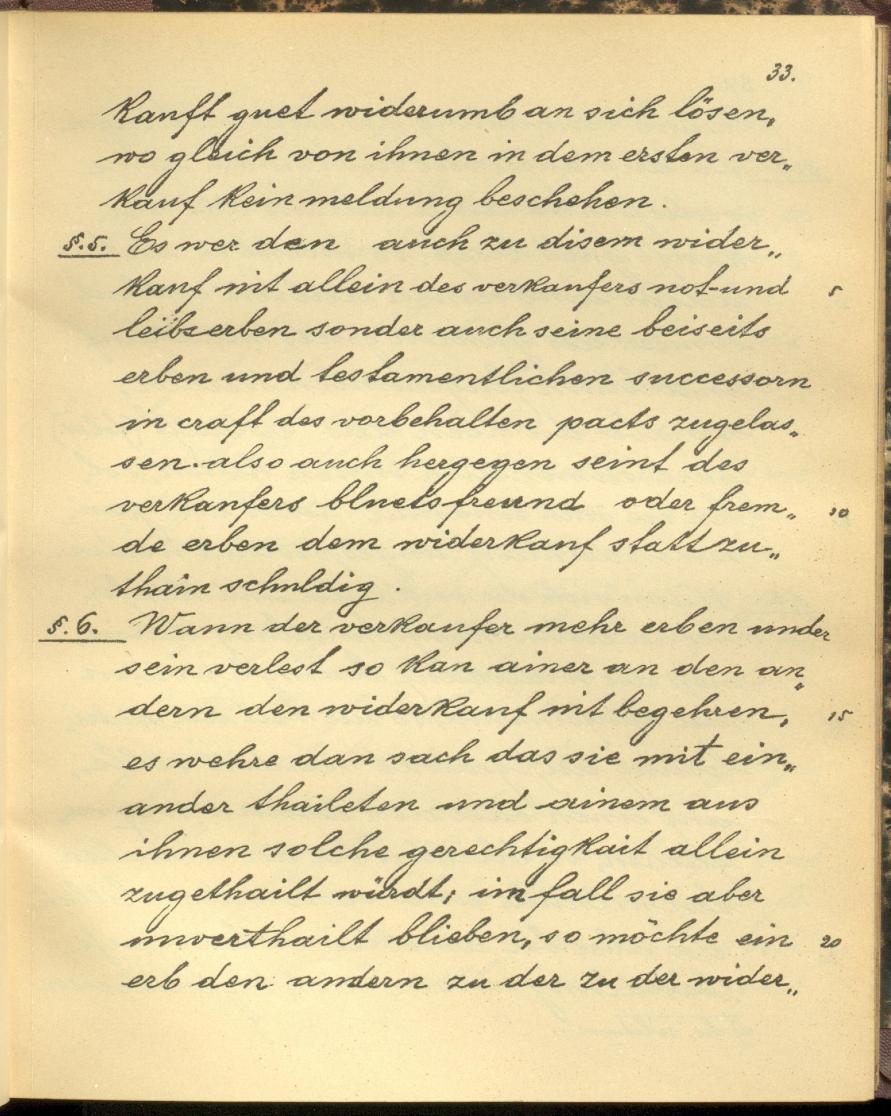 33.
kauft guet widerumb an sich lösen,
wo gleich von ihnen in dem ersten ver„
kauf kein meldung beschehen.
§.5. Es werden auch zu disem wider„
kauf nit allein des verkaufers not-und 5
leibserben sonder auch seine beiseits
erben und testamentlichen successorn
in craft des vorbehalten pacts zugelas„
sen. also auch hergegen seint des
verkaufers bluetsfreund oder frem„ 10
de erben dem widerkauf statt zu„
thain schuldig.
§.6. Wann der verkaufer mehr erben under
sein verlest so kan ainer an den an„
dern den widerkauf nit begehren, 15
es wehre dan sach das sie mit ein„
ander thaileten und ainem aus
ihnen solche gerechtigkait allein
zugethailt würdt; im fall sie aber
unverthailt blieben, so möchte ein 20
erb den andern zu der zu der wider„